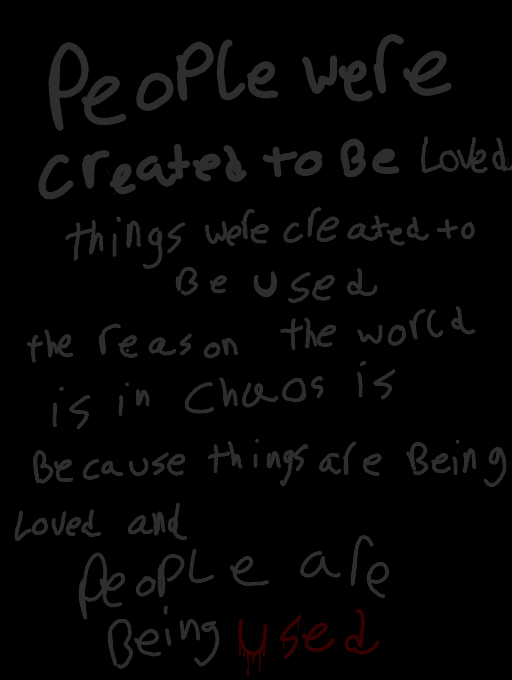 People were
created to Be Loved.
things were created to
Be used
the reason the world
is in chaos is
Because things are Being
Loved and
People are
Being used